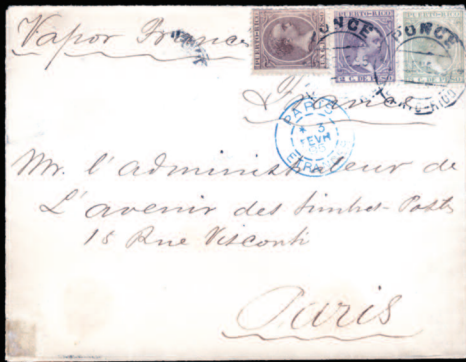 Vapor France
PUERTO-RICO
PUERTO-RICO
PUERTO-RICO
PONCE
PONCE
France
PARIS
3
FEVR
ETRANGER
Mr. l'administrateur de
L'avenir des timbres-Poste
15 Rue Visconti
Paris